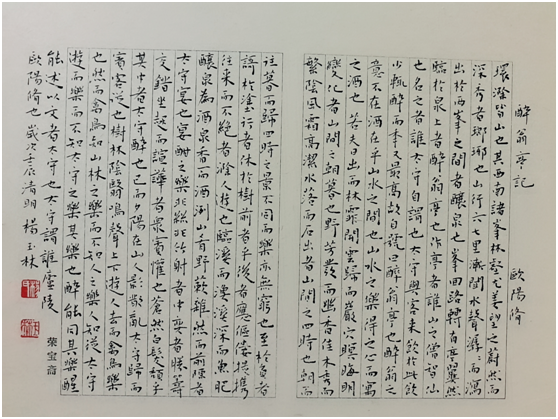 醉翁亭記　歐陽脩
環滁皆山也其西南諸峯林壑尤美望之蔚然而
深秀者瑯琊也山行六七里漸聞水聲潺潺而瀉
出於兩峯之間者釀泉也峯回路轉有亭翼然
臨於泉上者醉翁亭也作亭者誰山之僧智仙
也名之者誰太守自謂也太守與客來飲於此飲
少輒醉而年又最高故自號曰醉翁亭也醉翁之
意不在酒在乎山水之間也山水之樂得之心而寓
之酒也若夫日出而林霏開雲歸而巖穴暝晦明
變化者山間之朝暮也野芳發而幽香佳木秀而
繁陰風霜高潔水落而石出者山間之四時也朝而
往暮而歸四時之景不同而樂亦無窮也至於負者
謌於塗行者休於樹前者呼後者應傴僂提攜
往來而不絕者滁人遊也臨溪而漁溪深而魚肥
釀泉為酒泉香而酒洌山肴野蔌雜然而前陳者
太守宴也宴酣之樂非絲非竹射者中弈者勝籌
交錯坐起而諠譁者眾賓懽也蒼然白髮頹乎
其中者太守醉也已而夕陽在山人影散亂太守歸而
賓客從也樹林陰翳鳴聲上下遊人去而禽鳥樂
也然而禽鳥知山林之樂而不知人之樂人知從太守
遊而樂而不知太守之樂其樂也醉能同其樂醒
能述以文者太守也太守謂誰廬陵
歐陽脩也歲次壬辰清明楊玉林
榮宝斎